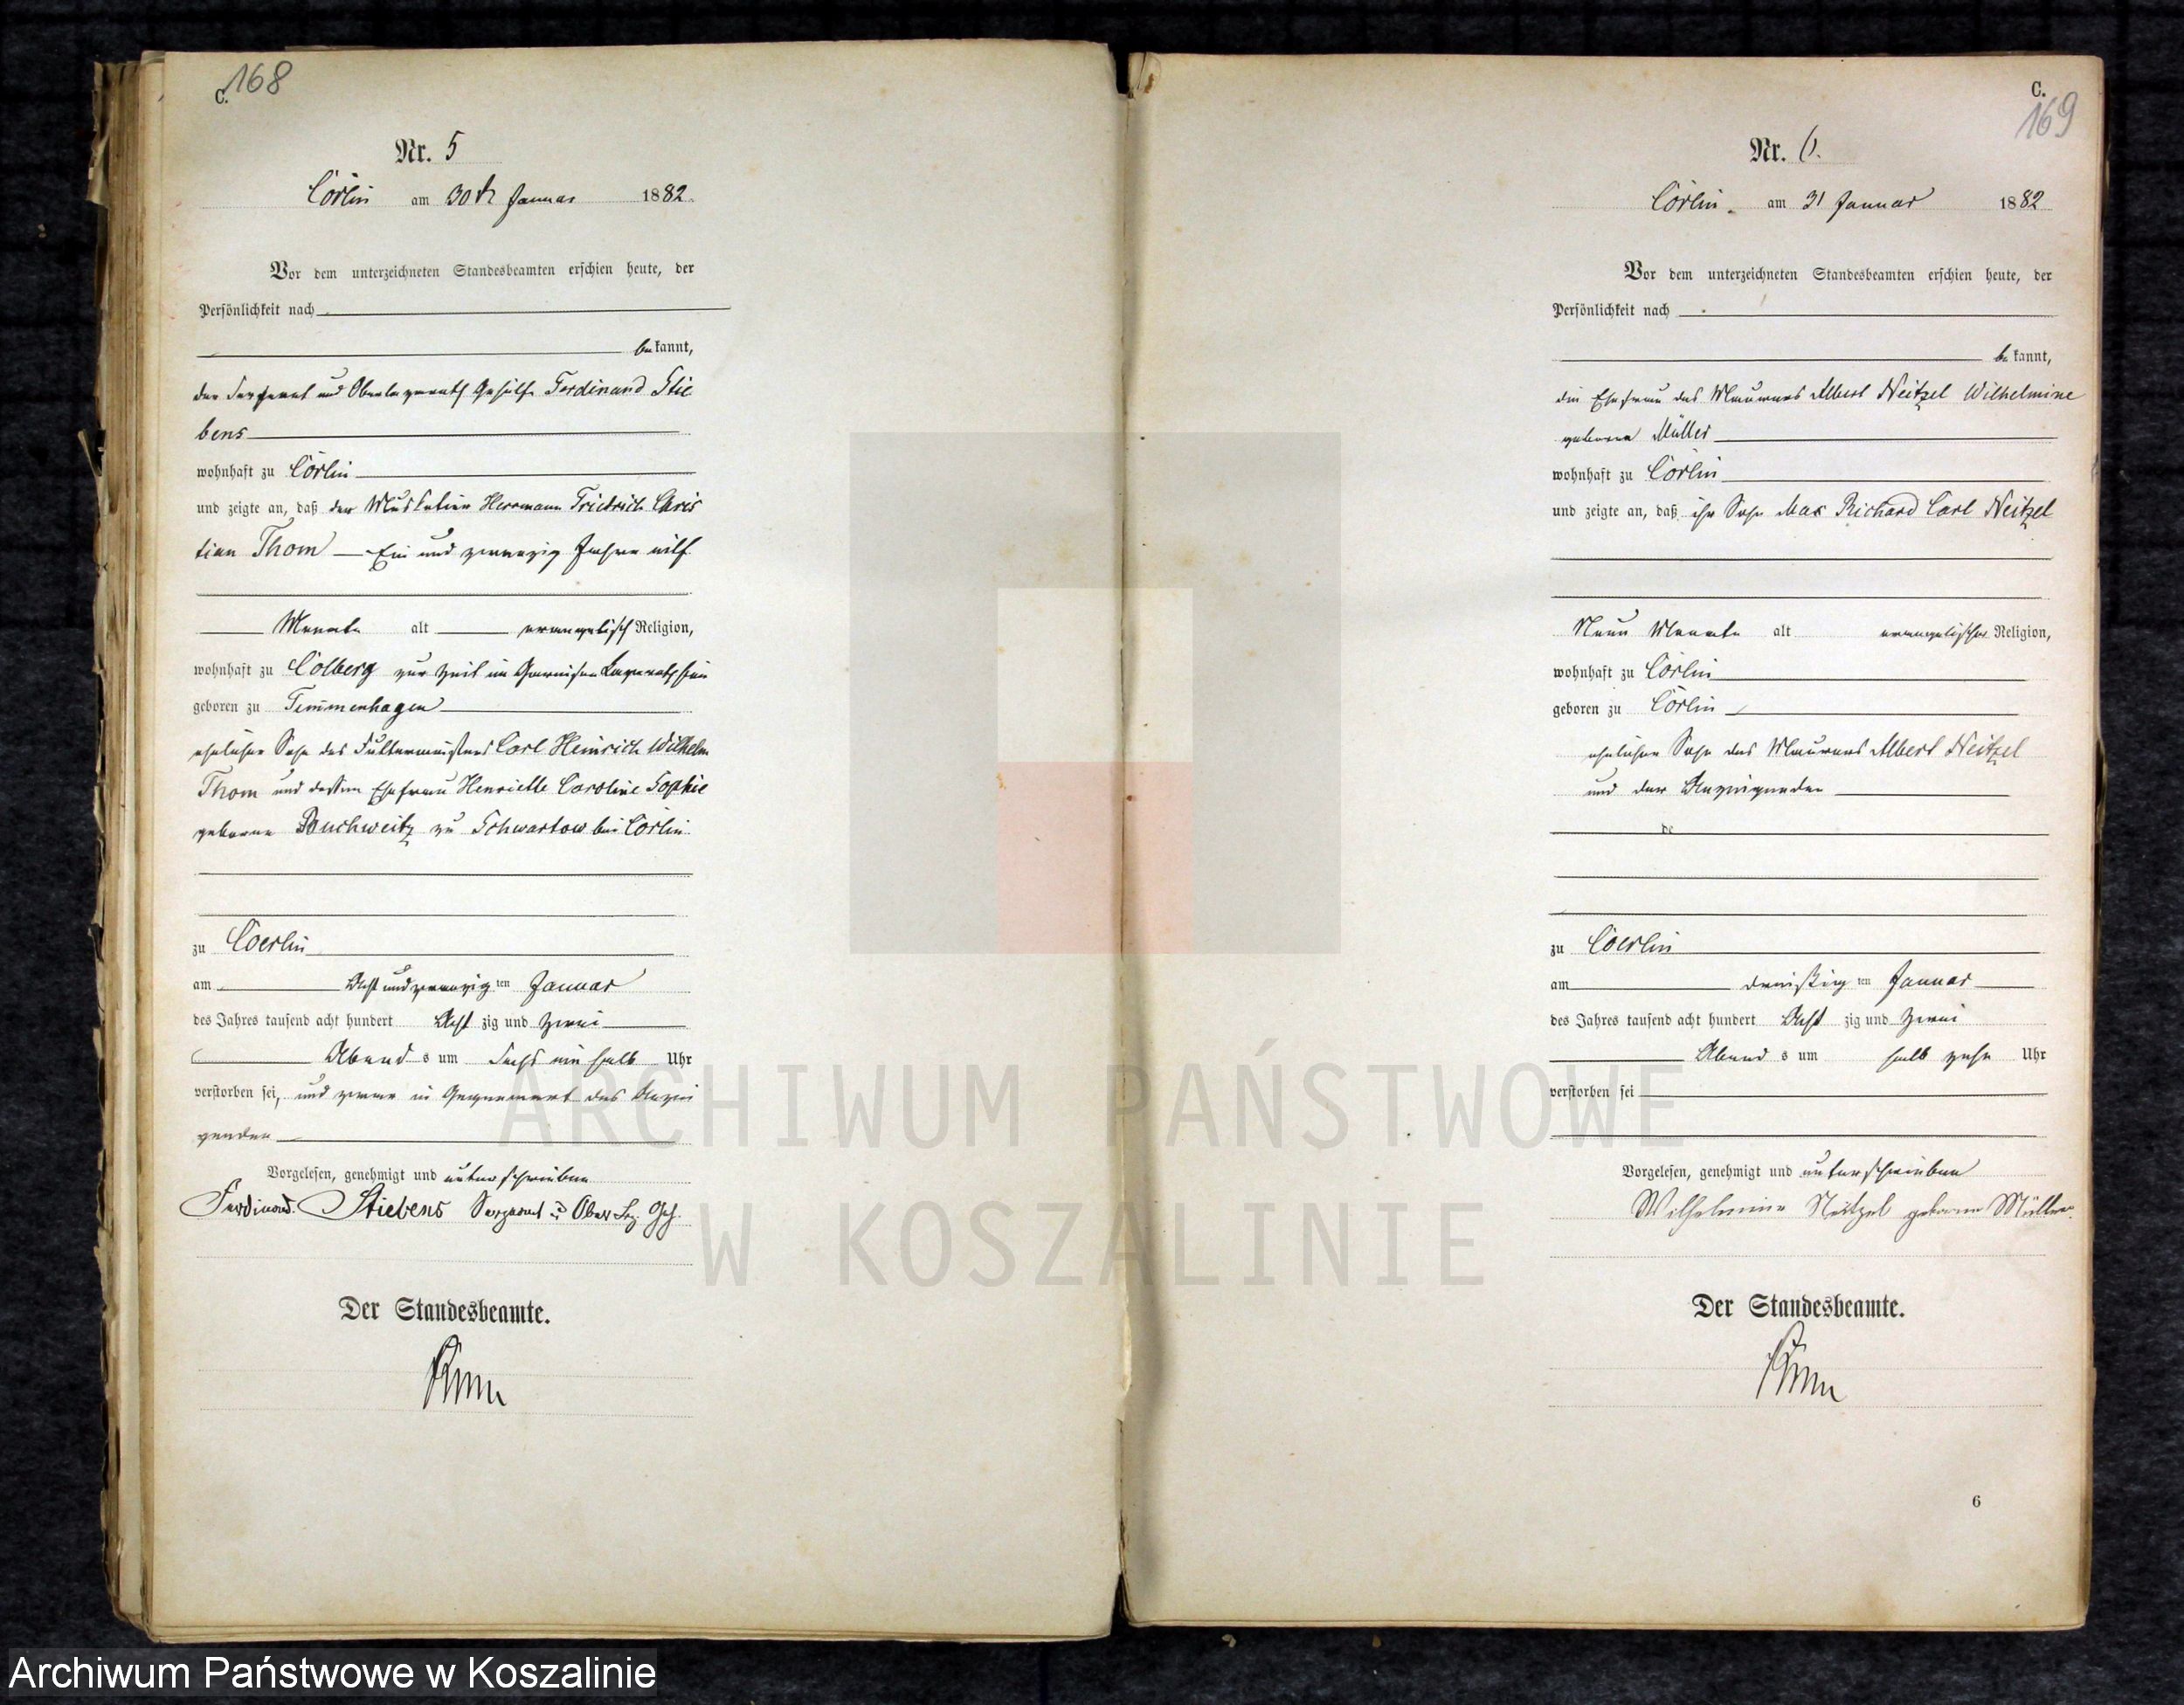 C.
168
Nr. 5
Cörlin am 30t Januar 1882.
Vor dem unterzeichneten Standesbeamten erschien heute, der
Persönlichkeit nach
bekannt,
der Sergeant und Oberlazareth Gehülfe Ferdinand Stie
bens
wohnhaft zu Cörlin
und zeigte an, daß der Musketier Herrmann Friedrich Chris
tian Thom — Ein und zwanzig Jahre elf
Monate alt evangelisch Religion,
wohnhaft zu Colberg zur Zeit im Garnison Lazareth hier
geboren zu Timmenhagen
ehelicher Sohn des Futtermeisters Carl Heinrich Wilhelm
Thom und dessen Ehefrau Henriette Caroline Sophie
geborne Buchweitz zu Schwartow bei Cörlin
zu Coerlin
am Acht und zwanzig ten Januar
des Jahres tausend acht hundert Acht zig und zwei
Abend s um Sechs ein halb Uhr
verstorben sei, und zwar in Gegenwart des Anzei
genden
Vorgelesen, genehmigt und unterschrieben
Ferdinand Stiebens Sergeant u Ober Laz. Geh.
Der Standesbeamte.
C.
169
Nr. 6.
Cörlin am 31 Januar 1882
Vor dem unterzeichneten Standesbeamten erschien heute, der
Persönlichkeit nach
bekannt,
die Ehefrau des Maurers Albert Neitzel Wilhelmine
geborne Müller
wohnhaft zu Cörlin
und zeigte an, daß ihr Sohn Max Richard Carl Neitzel
Neun Monate alt evangelischer Religion,
wohnhaft zu Cörlin
geboren zu Cörlin
ehelicher Sohn des Maurers Albert Neitzel
und der Anzeigenden
de
zu Coerlin
am dreißig ten Januar
des Jahres tausend acht hundert Acht zig und zwei
Abend s um halb zehn Uhr
verstorben sei
Vorgelesen, genehmigt und unterschrieben
Wilhelmine Neitzel geborne Müller.
Der Standesbeamte.
6
ARCHIWUM PAŃSTWOWE
W KOSZALINIE
Archiwum Państwowe w Koszalinie